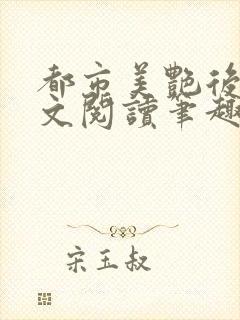 都市美艷後
文閱讀筆趣
宋玉叔